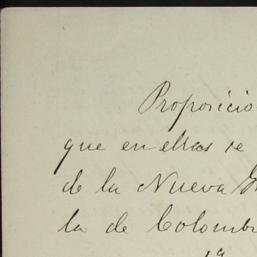 Proposicio
que en ellas se
de la Nueva G
la de Colombi
1ª